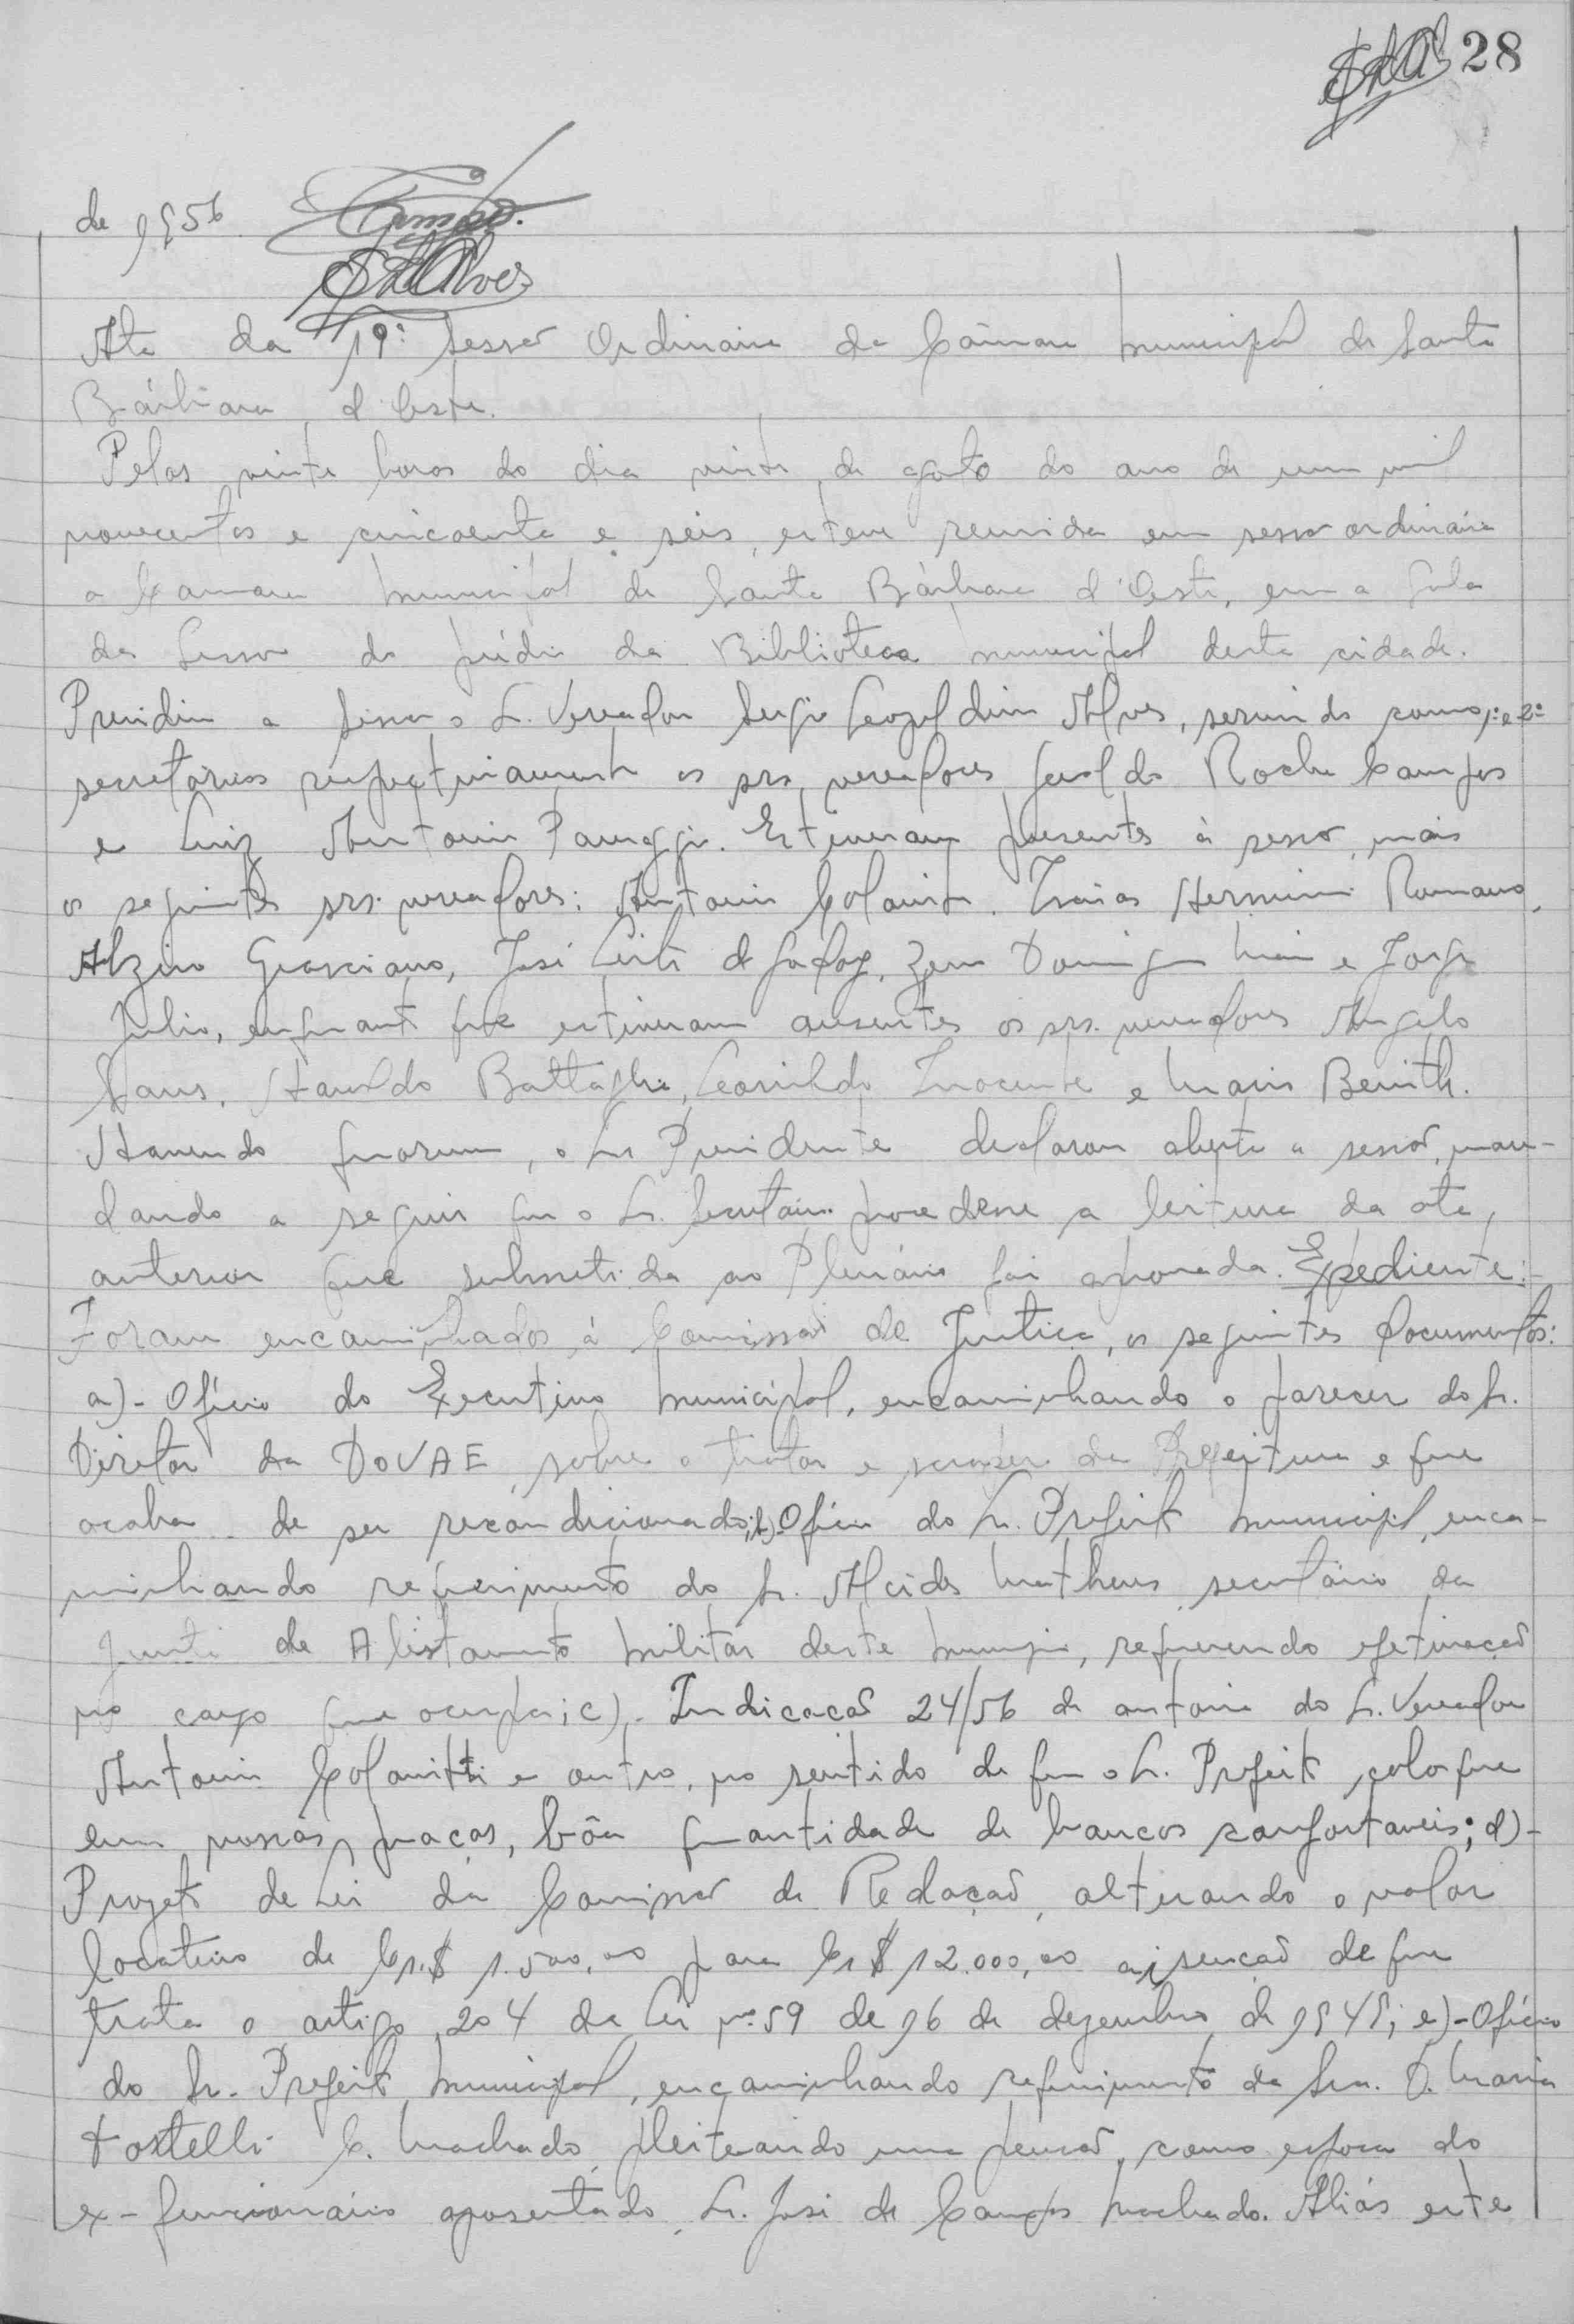 28
de 1956
Ata da 19ª sessão Ordinaria da Câmara Municipal de Santa
Bárbara d'Oeste.
Pelas vinte horas do dia vinte de agosto do ano de um mil
novecentos e cincoenta e seis, esteve reunida em sessão ordinária
a Camara Municipal de Santa Bárbara d'Oeste, em a Sala
das Sessões do prédio da Biblioteca municipal desta cidade.
Presidiu a sessão o Sr. Vereador Sergio Leopoldino Alves, servindo como 1º e 2º
secretários respectivamente os srs. vereadores Geraldo Rocha Campos
e Luiz Antonio Panaggio. Estiveram presentes à sessão, mais
os seguintes srs. vereadores: Antonio Colanitti. Isaias Herminio Romano,
Alziro Graciano, José Leite de Godoy, Domingos e Jorge
Julio, enquanto que estiveram ausentes os srs. vereadores Angelo
Sans, Haroldo Battaglia, Leonildo Inocente e Mario Benith.
Havendo quorum, o Sr Presidente declarou aberta a sessão, man-
dando a seguir que o Sr. Secretário procedesse a leitura da ata,
anterior que submetida ao Plenário foi aprovada. Expediente:-
Foram encaminhados, à Comissão de Justiça, os seguintes documentos:
a)- Oficio do Executivo Municipal, encaminhando o parecer do Sr.
Diretor da DOVAE sobre o trator e scraper da Prefeitura e que
acaba de ser recondicionado; b)- Oficio do Sr. Prefeito Municipal, enca-
minhando requerimento do Sr. Alcides Matheus, secretário da
Junta de Alistamento Militar deste Municipio, requerendo efetivação
no cargo que ocupa; c)- Indicação 24/56 de autoria do Sr. Vereador
Antonio Colanitti e outro, no sentido de que o Sr. Prefeito coloque
em nossas praças, bôa quantidade de bancos confortaveis; d)-
Projeto de Lei da Comissão de Redação, alterando o valor
locativo de Cr.$ 1.500,00 para Cr$ 12.000,00 a isenção de que
trata o artigo 204 da Lei nº 59 de 16 de dezembro de 1949; e)- Oficio
do Sr. Prefeito Municipal, encaminhando requerimento da Sra. D. Maria
Tostelli C. Machado, pleiteando uma pensão, como esposa do
ex-funcionário aposentado, Sr. José de Campos Machado. Aliás este